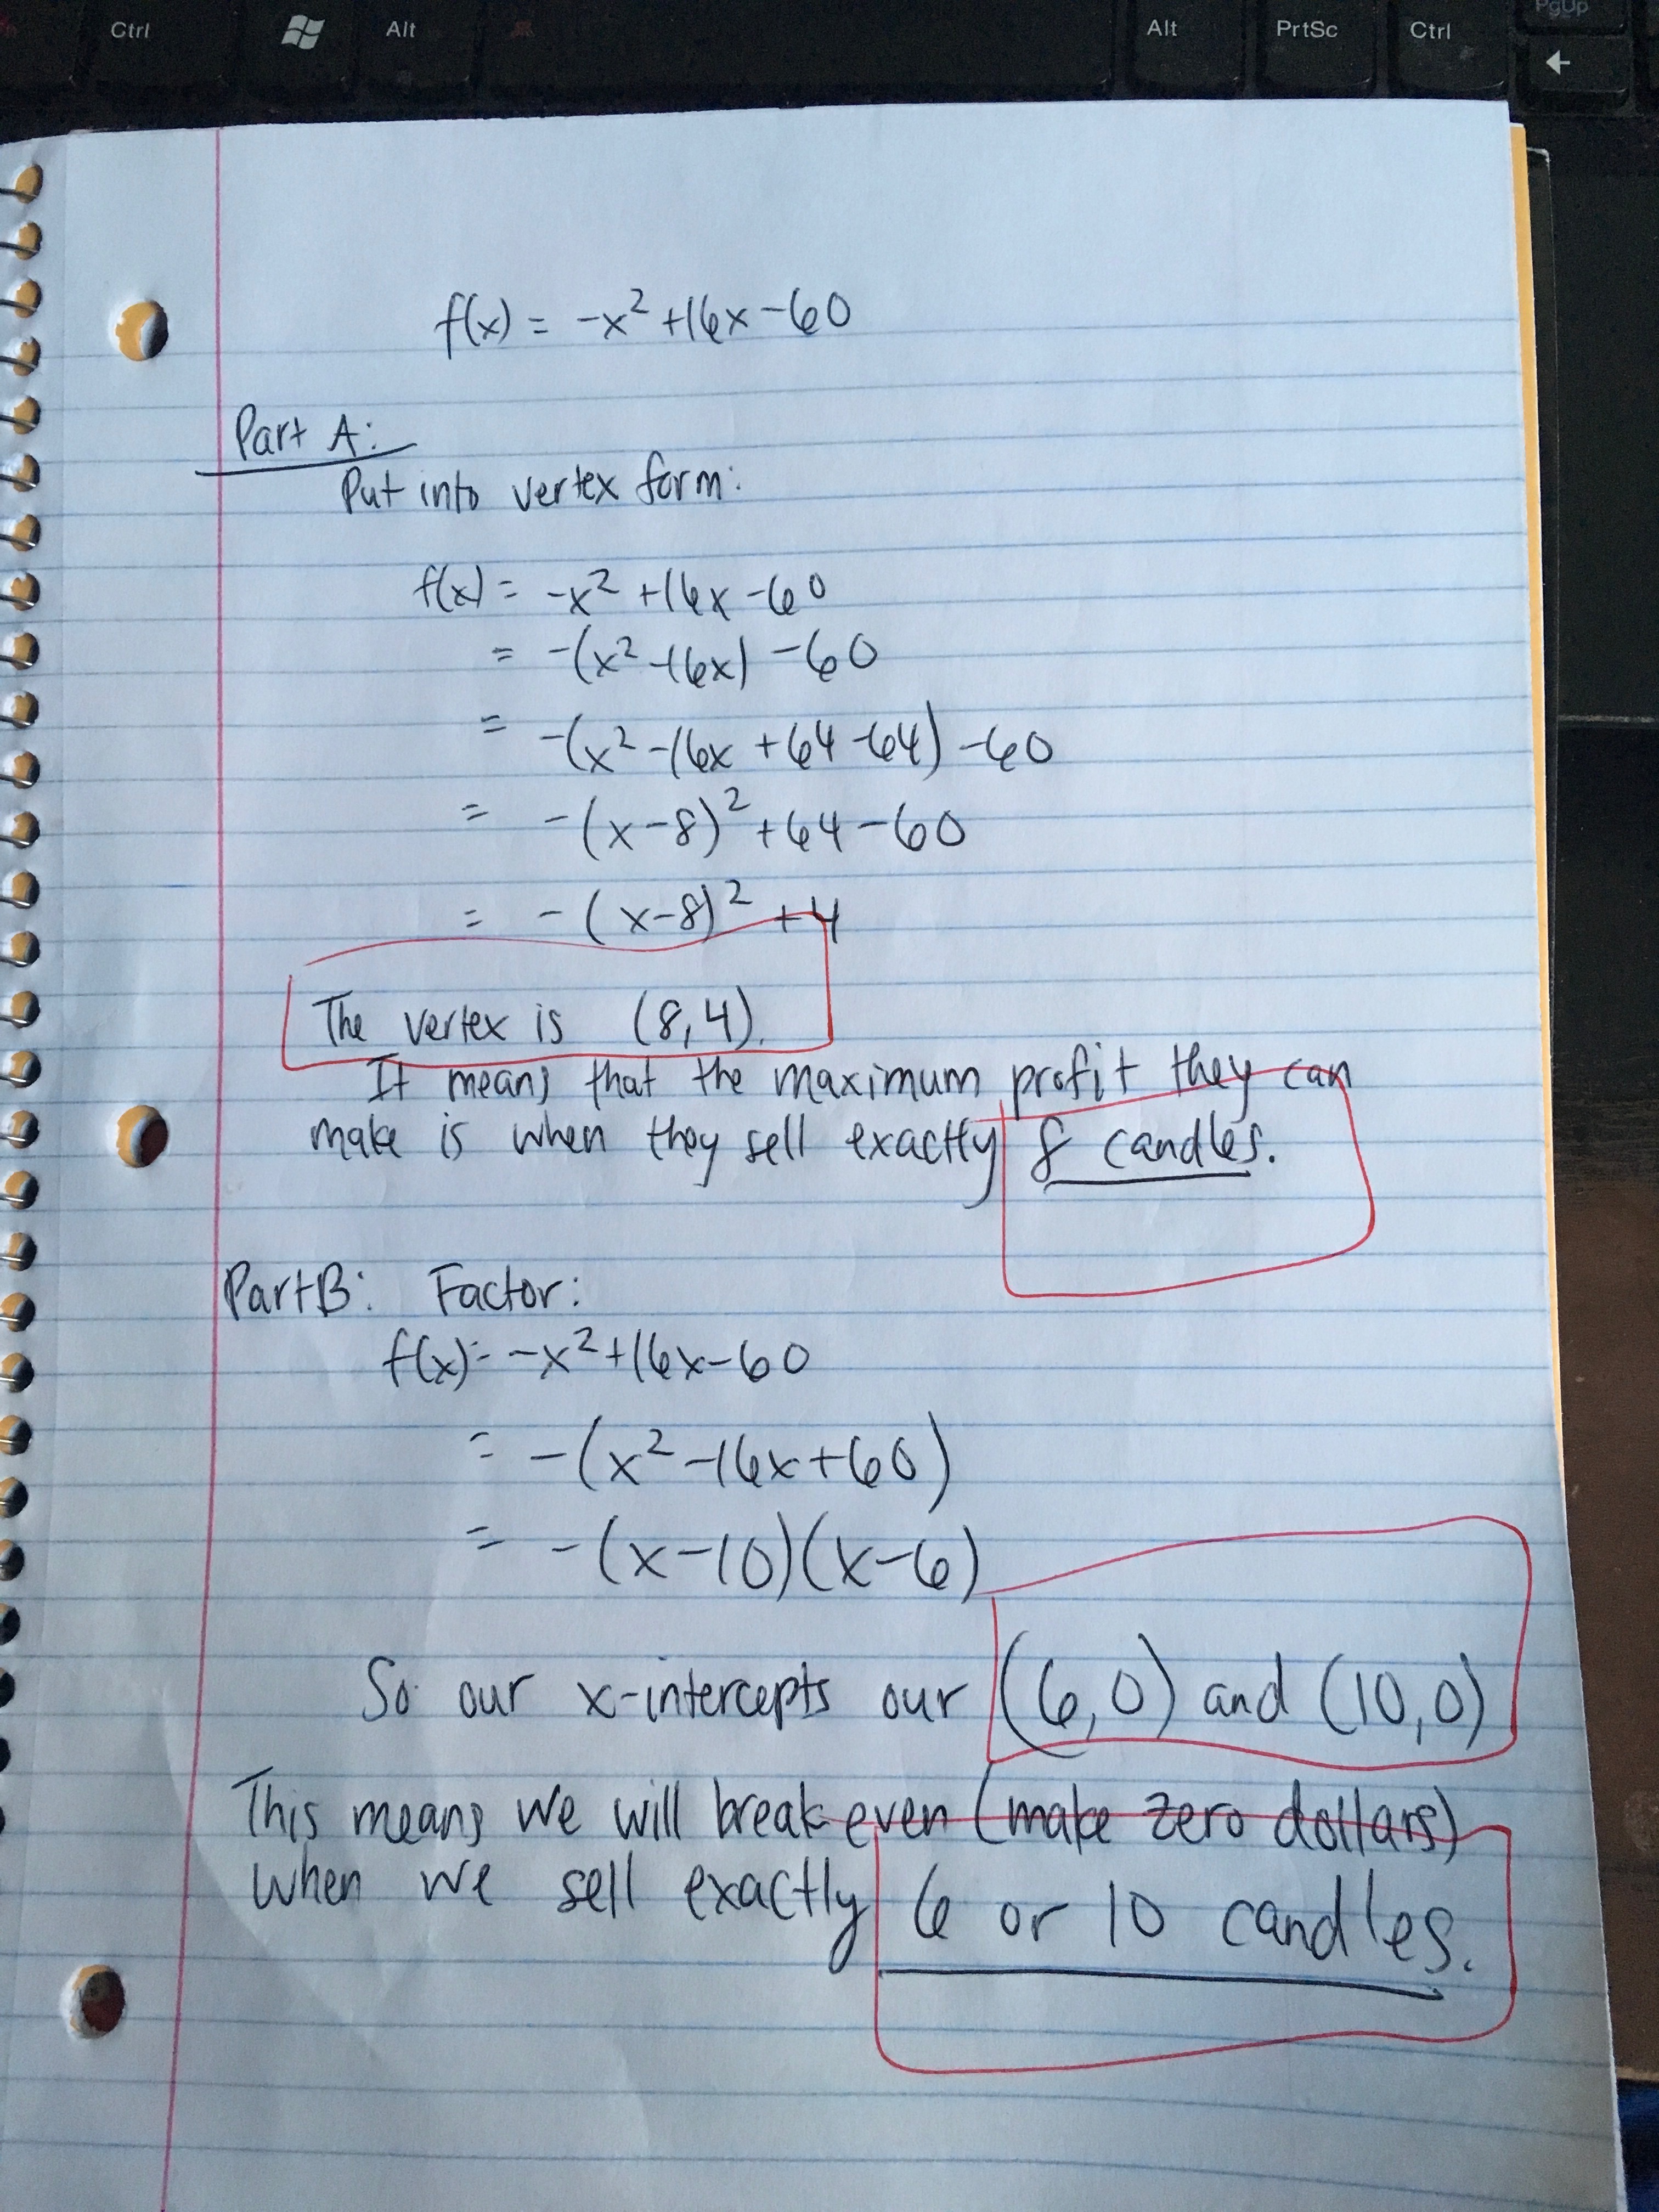 Ctrl Alt Alt PrtSc Ctrl PgUp
f(x) = -x² +16x -60
Part A:
Put into vertex form:
f(x) = -x² +16x -60
= -(x² -16x) -60
= -(x² -16x +64 -64) -60
= -(x-8)² +64 -60
= -(x-8)² +4
The vertex is (8,4).
It means that the maximum profit they can
make is when they sell exactly 8 candles.
Part B: Factor:
f(x) = -x² +16x -60
= -(x² -16x +60)
= -(x-10)(x-6)
So our x-intercepts our (6,0) and (10,0)
This means we will break even (make zero dollars)
when we sell exactly 6 or 10 candles.